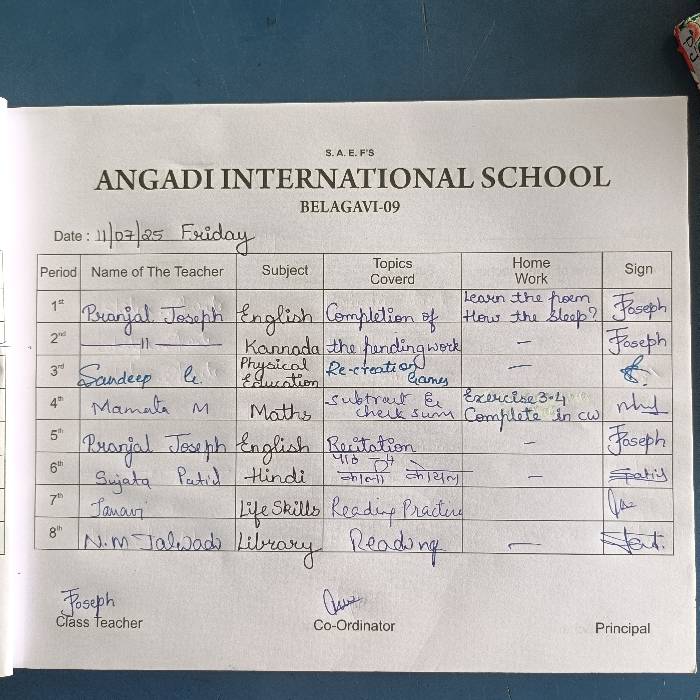 S. A. E. F'S
ANGADI INTERNATIONAL SCHOOL
BELAGAVI-09
Date : 11/07/25 Friday
Period Name of The Teacher Subject Topics Coverd Home Work Sign
1st Pranjal Joseph English Completion of Learn the poem How the Sleep? Joseph
2nd —11— Kannada the pending work — Joseph
3rd Sandeep G. Physical Education Re-creation Games —
4th Mamata M Maths Subtract & check sum Exercise 3.4 Complete in cw
5th Pranjal Joseph English Recitation — Joseph
6th Sujata Patil Hindi काला कोयल — Spatil
7th Janavi Life Skills Reading Practice
8th N.M Jalwadi Library Reading —
Joseph
Class Teacher Co-Ordinator Principal